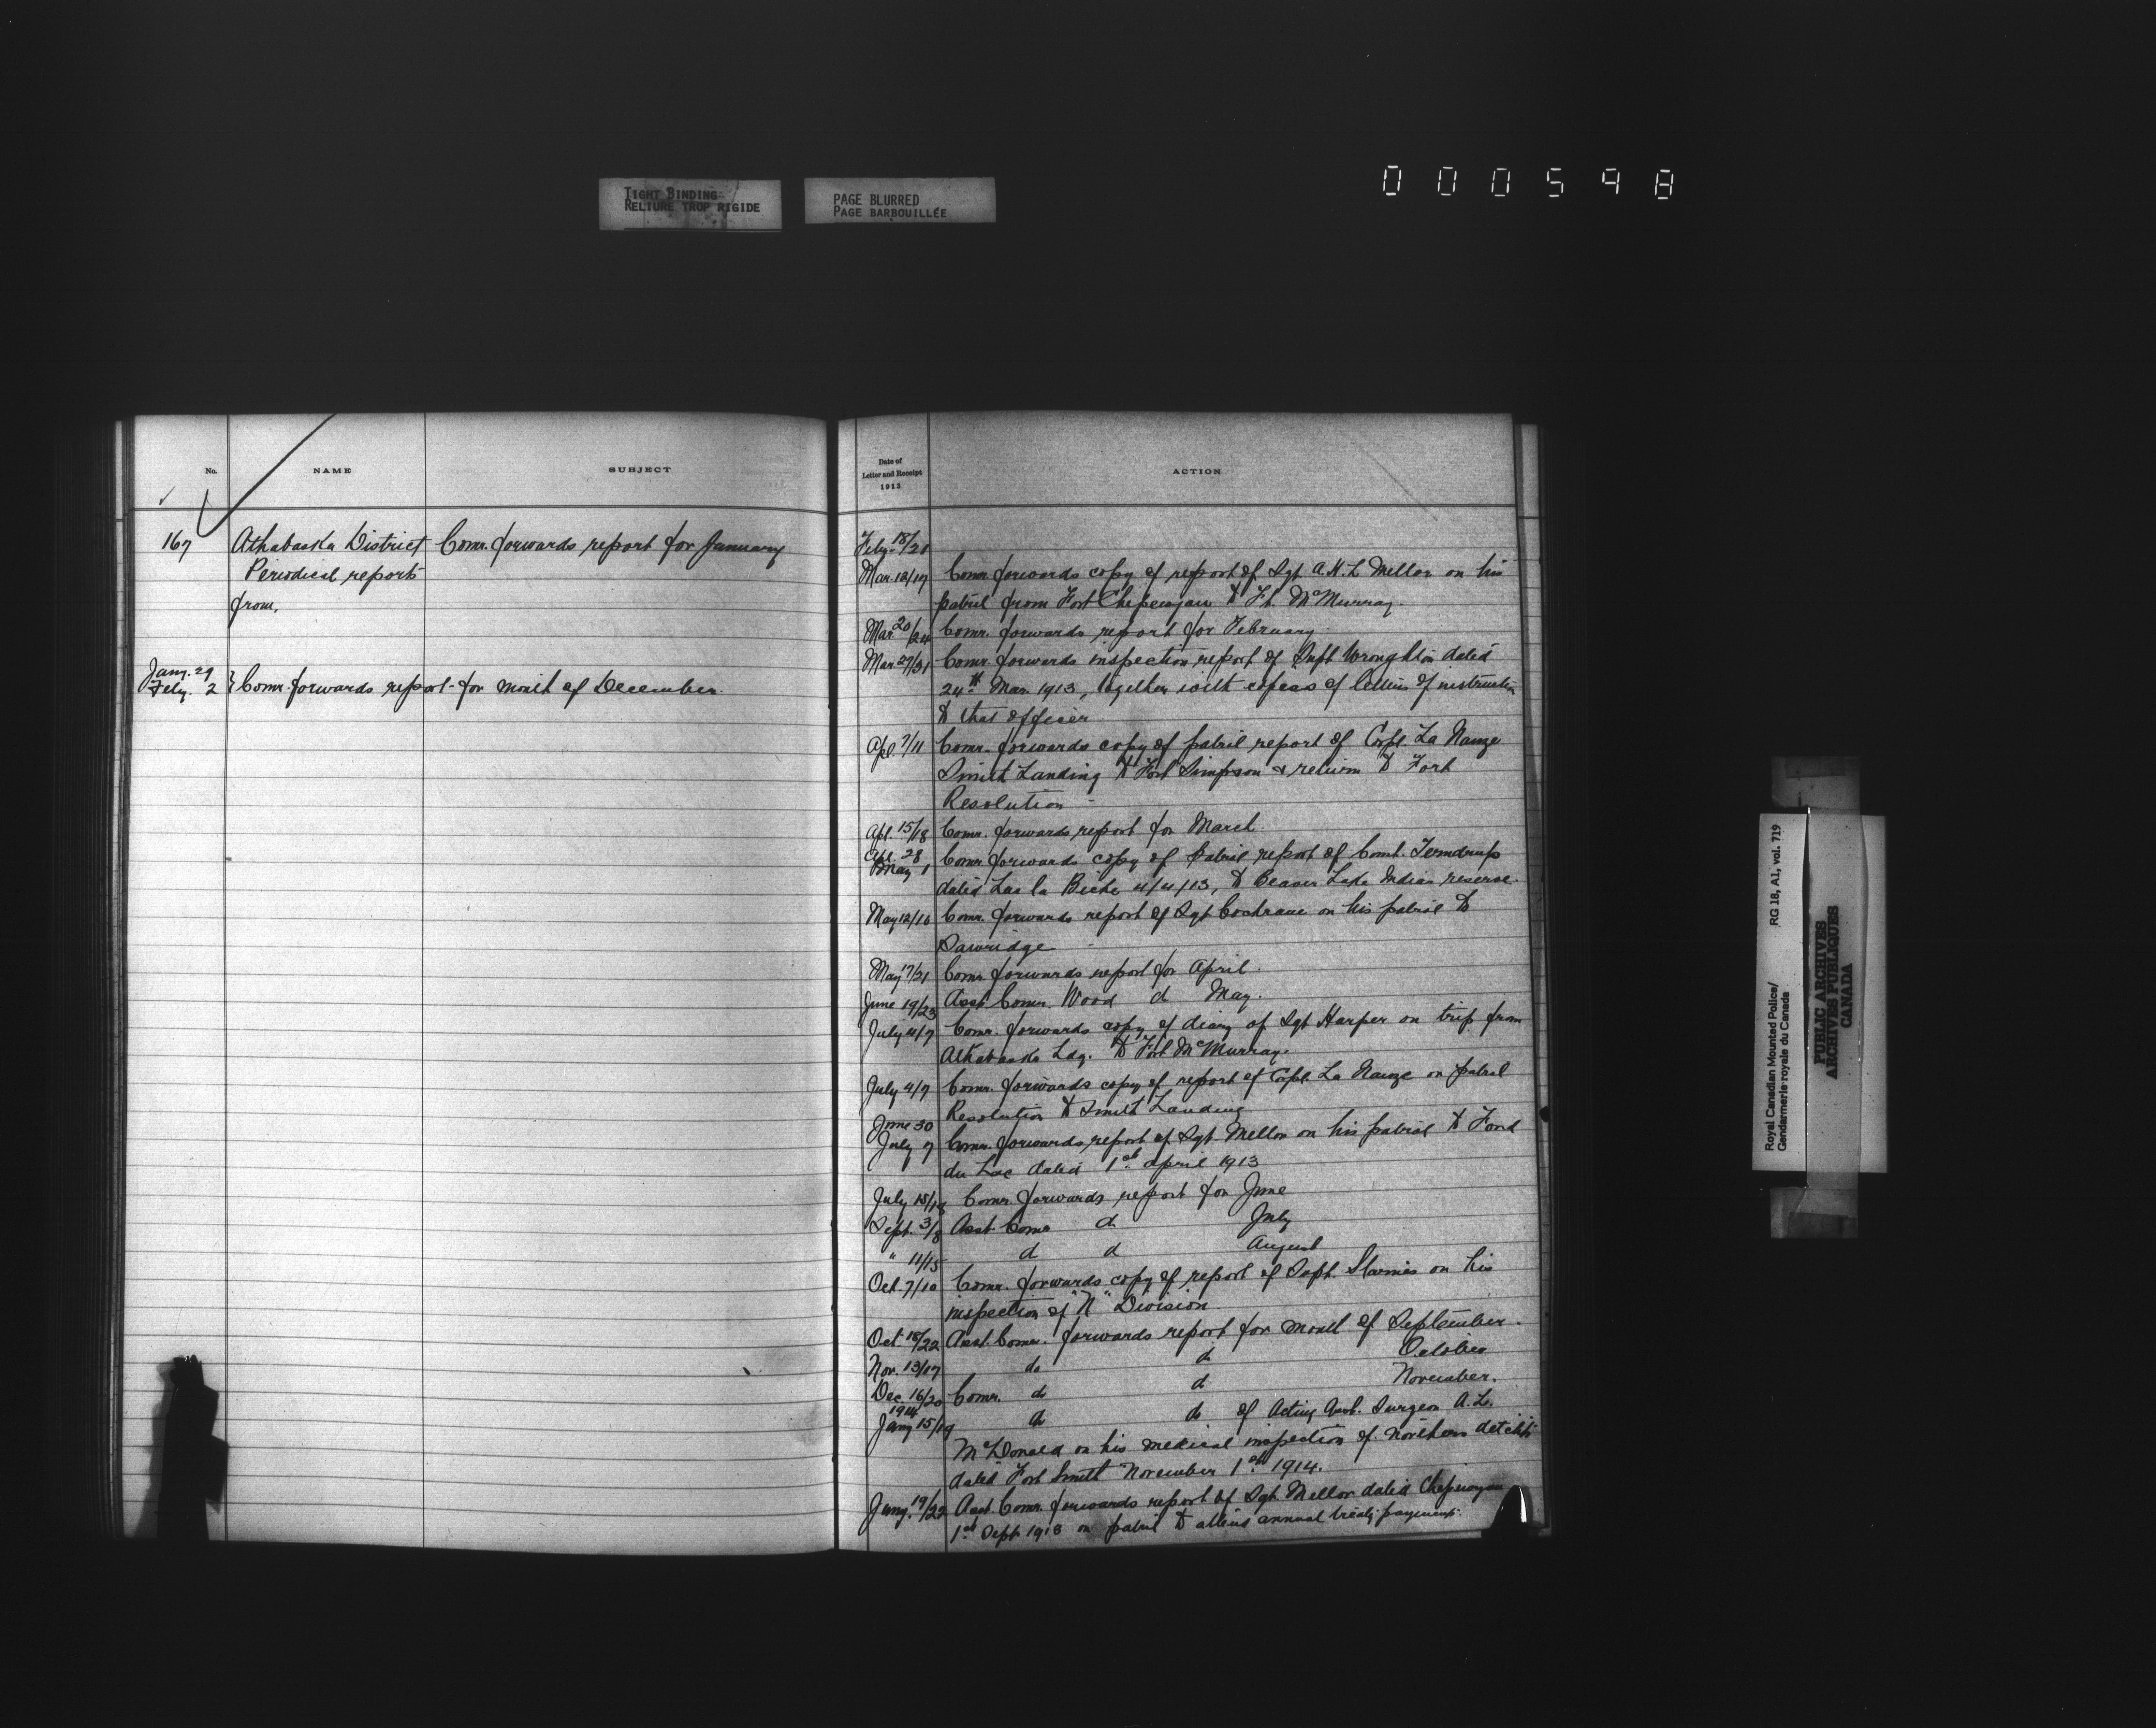 TIGHT BINDING
RELIURE TROP RIGIDE
PAGE BLURRED
PAGE BARBOUILLÉE
000598
No. NAME SUBJECT
167 Athabaska District Comr. forwards report for January
Periodical reports
from.
Jany. 29
Feby. 2 } Comr. forwards report for month of December.
Date of
Letter and Receipt
1913
ACTION
Feby. 18/21
Mar. 12/17 Comr. forwards copy of report of Sgt. A.H.L. Mellor on his
patrol from Fort Chipewyan to Ft. McMurray.
Mar 20/24 Comr. forwards report for February
Mar. 27/31 Comr. forwards inspection report of Supt Wroughton dated
24th Mar. 1913, together with copies of letters of instruction
to that officer
Apl. 7/11 Comr. forwards copy of patrol report of Corpl. La Nauze
Smith Landing to Fort Simpson & return to Fort
Resolution
Apl. 15/18 Comr. forwards report for March
Apl. 28
May 1 Comr. forwards copy of patrol report of Const. Termdrup
dated Lac la Biche 4/4/13, to Beaver Lake Indian reserve.
May 12/16 Comr. forwards report of Sgt Cochrane on his patrol to
Sawridge
May 17/21 Comr. forwards report for April.
June 19/23 Asst Comr. Wood do May.
July 4/7 Comr. forwards copy of diary of Sgt Harper on trip from
Athabaska Ldg. to Fort McMurray.
July 4/7 Comr. forwards copy of report of Corpl. La Nauze on patrol
Resolution to Smith Landing
June 30
July 7 Comr. forwards report of Sgt. Mellor on his patrol to Fond
du Lac dated 1st April 1913
July 15/18 Comr. forwards report for June
Sept. 3/8 Asst. Comr do July
" 11/15 do do August
Oct. 7/10 Comr. forwards copy of report of Supt. Starnes on his
inspection of "N" Division
Oct 18/22 Asst. Comr. forwards report for month of September.
Nov. 13/17 do do October
Dec. 16/20 Comr. do do November.
1914
Jany 15/19 do do of Acting Asst. Surgeon A.L.
McDonald on his medical inspection of northern detchts
dated Fort Smith November 1st 1914.
Jany. 19/22 Asst Comr. forwards report of Sgt. Mellor dated Chipewyan
1st Sept 1913 on patrol to attend annual treaty payments.
Royal Canadian Mounted Police/
Gendarmerie royale du Canada
RG 18, A1, vol. 719
PUBLIC ARCHIVES
ARCHIVES PUBLIQUES
CANADA